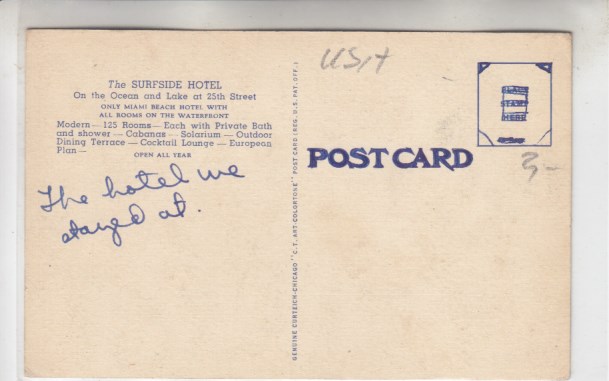 The SURFSIDE HOTEL
On the Ocean and Lake at 25th Street
ONLY MIAMI BEACH HOTEL WITH
ALL ROOMS ON THE WATERFRONT
Modern — 125 Rooms — Each with Private Bath
and shower — Cabanas — Solarium — Outdoor
Dining Terrace — Cocktail Lounge — European
Plan —
OPEN ALL YEAR
The hotel we
stayed at.
GENUINE CURTEICH-CHICAGO "C.T. ART-COLORTONE" POST CARD (REG. U.S. PAT. OFF.)
USA
POST CARD
PLACE
STAMP
HERE
3-